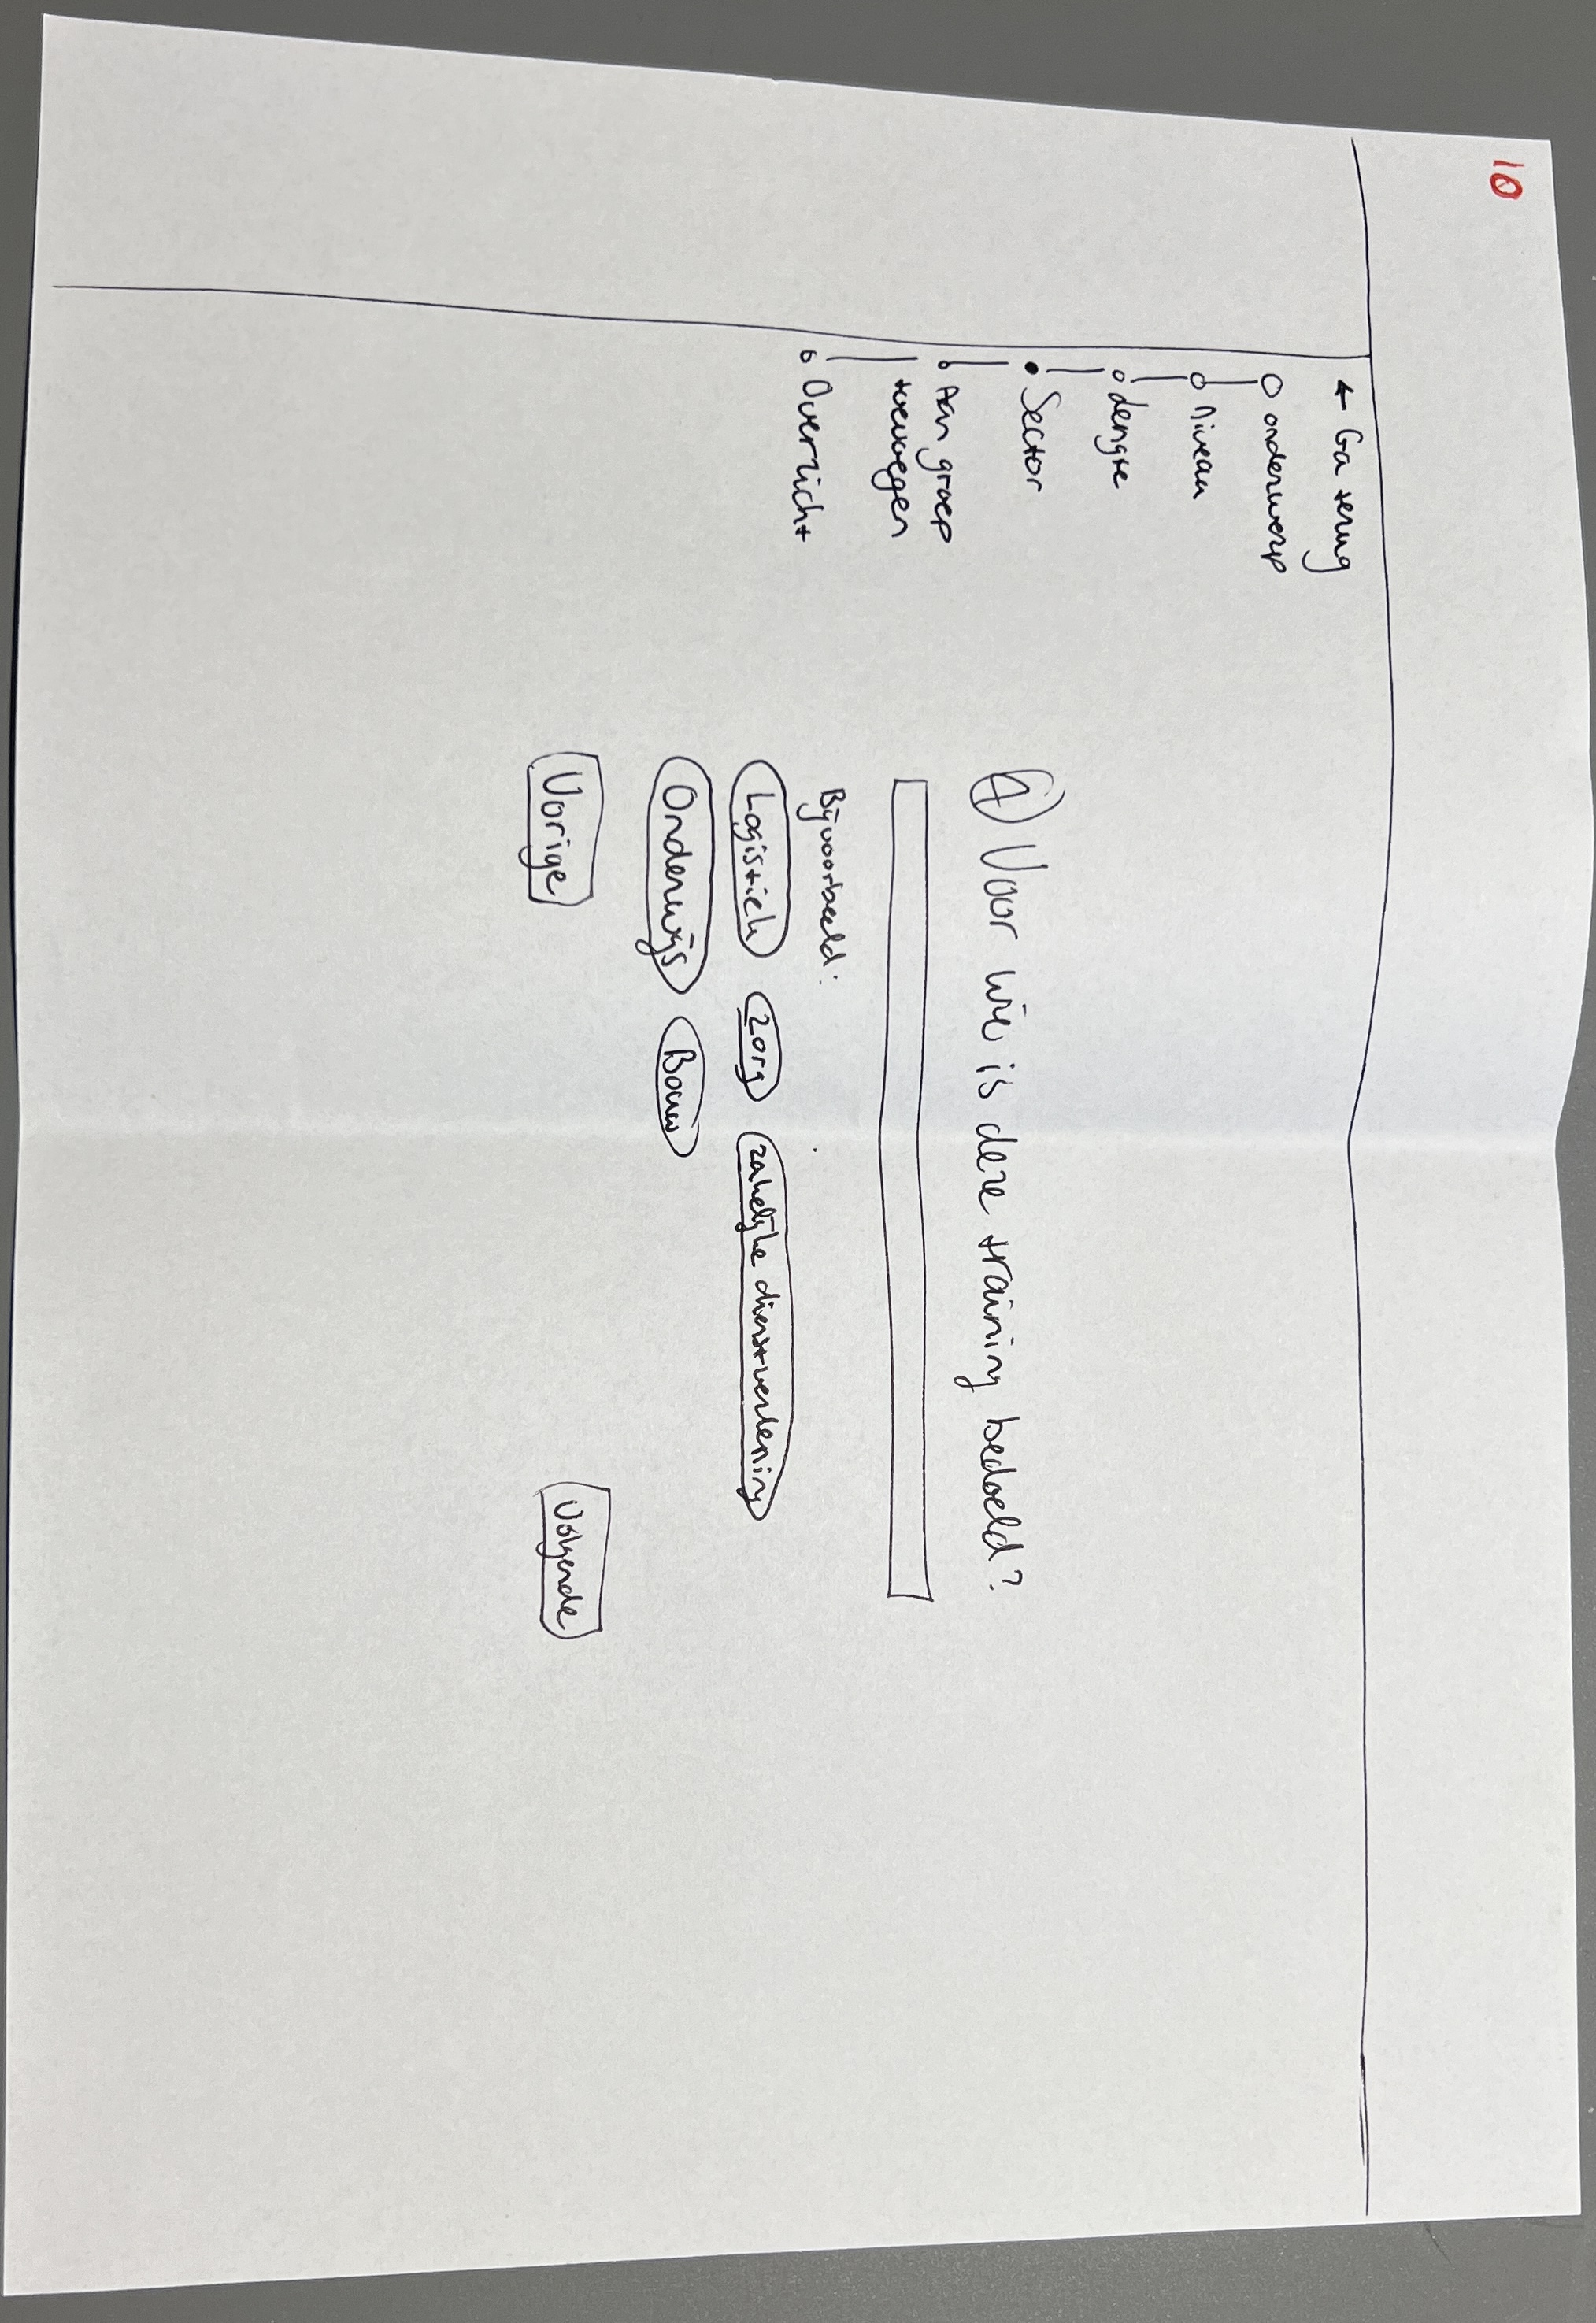 10
← Ga terug
onderwerp
Niveau
Lengte
Sector
Aan groep
toevoegen
Overzicht
4 Voor wie is deze training bedoeld?
Bijvoorbeeld:
Logistiek zorg zakelijke dienstverlening
Onderwijs Bouw
Vorige Volgende